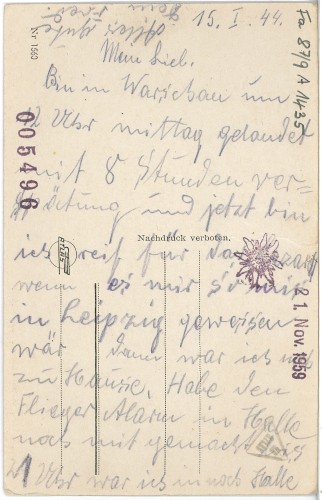 Alles Gute
15. I. 44.
Fa 87/9 A 1435
Nr 1560
Mein Lieb.
Bin in Warschau um
12 Uhr mittag gelandet
005496
mit 8 Stunden ver-
spätung und jetzt bin
Nachdruck verboten.
ich reif für
wenn es mir so mies
21. Nov. 1959
in Leipzig gewesen
wär dann war ich
zu Hause. Habe den
Flieger Alarm in Halle
noch mit gemacht bis
1 Uhr war ich noch Halle